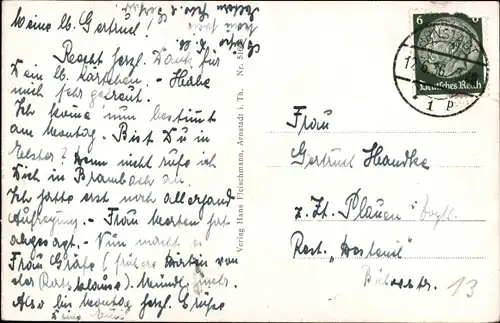 Meine lb. Gertrud!
Recht herzl. Dank für
Dein lb. Kärtchen. - Habe
mich sehr gefreut.
Ich komme nun bestimmt
am Montag. - Bist Du in
Elster? Wenn nicht rufe ich
Dich in Brambach an.
Ich hatte erst noch allerhand
Aufregung. - Frau hat
abgesagt. - Nun macht es
Frau Gräfe (früher Wirtin von
der Ratsklause). Mündl. mehr.
Also bis Montag herzl. Grüße
Deine
Verlag Hans Fleischmann, Arnstadt i. Th. Nr.
6
Deutsches Reich
ARNSTADT
1 p
Frau
Gertrud Handke
z. Zt. Plauen i. Vogtl.
Rest. "Westend"
13